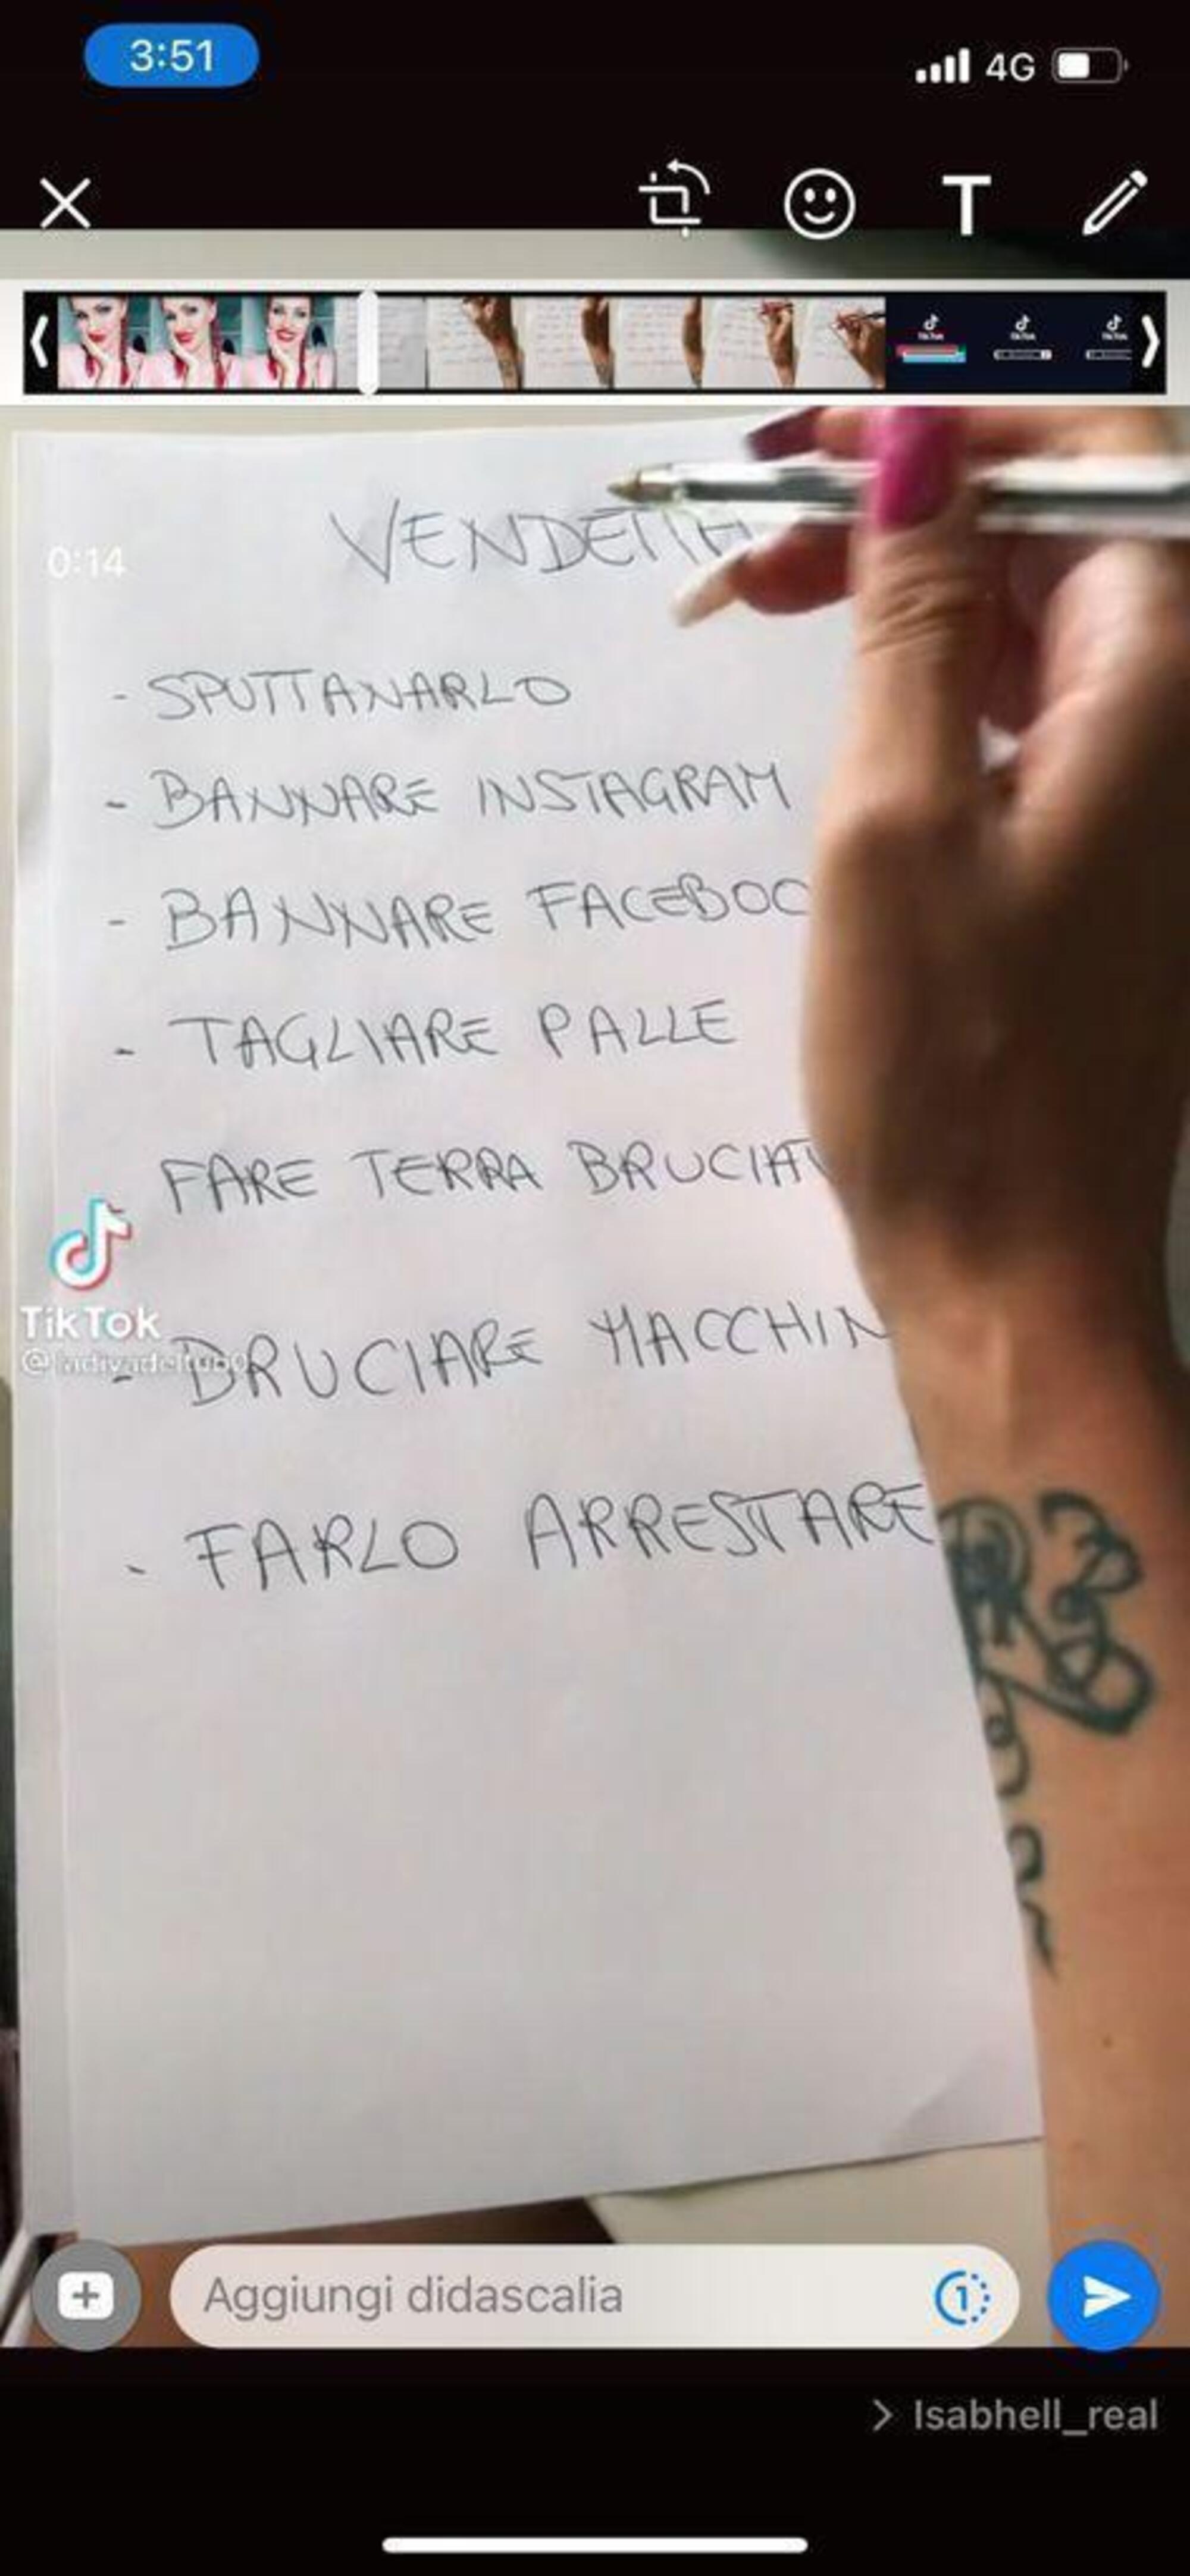 3:51
4G
T
0:14
VENDETTA
- SPUTTANARLO
- BANNARE INSTAGRAM
- BANNARE FACEBOO
- TAGLIARE PALLE
FARE TERRA BRUCIAT
TikTok
- BRUCIARE MACCHIN
- FARLO ARRESTARE
Aggiungi didascalia
1
> Isabhell_real